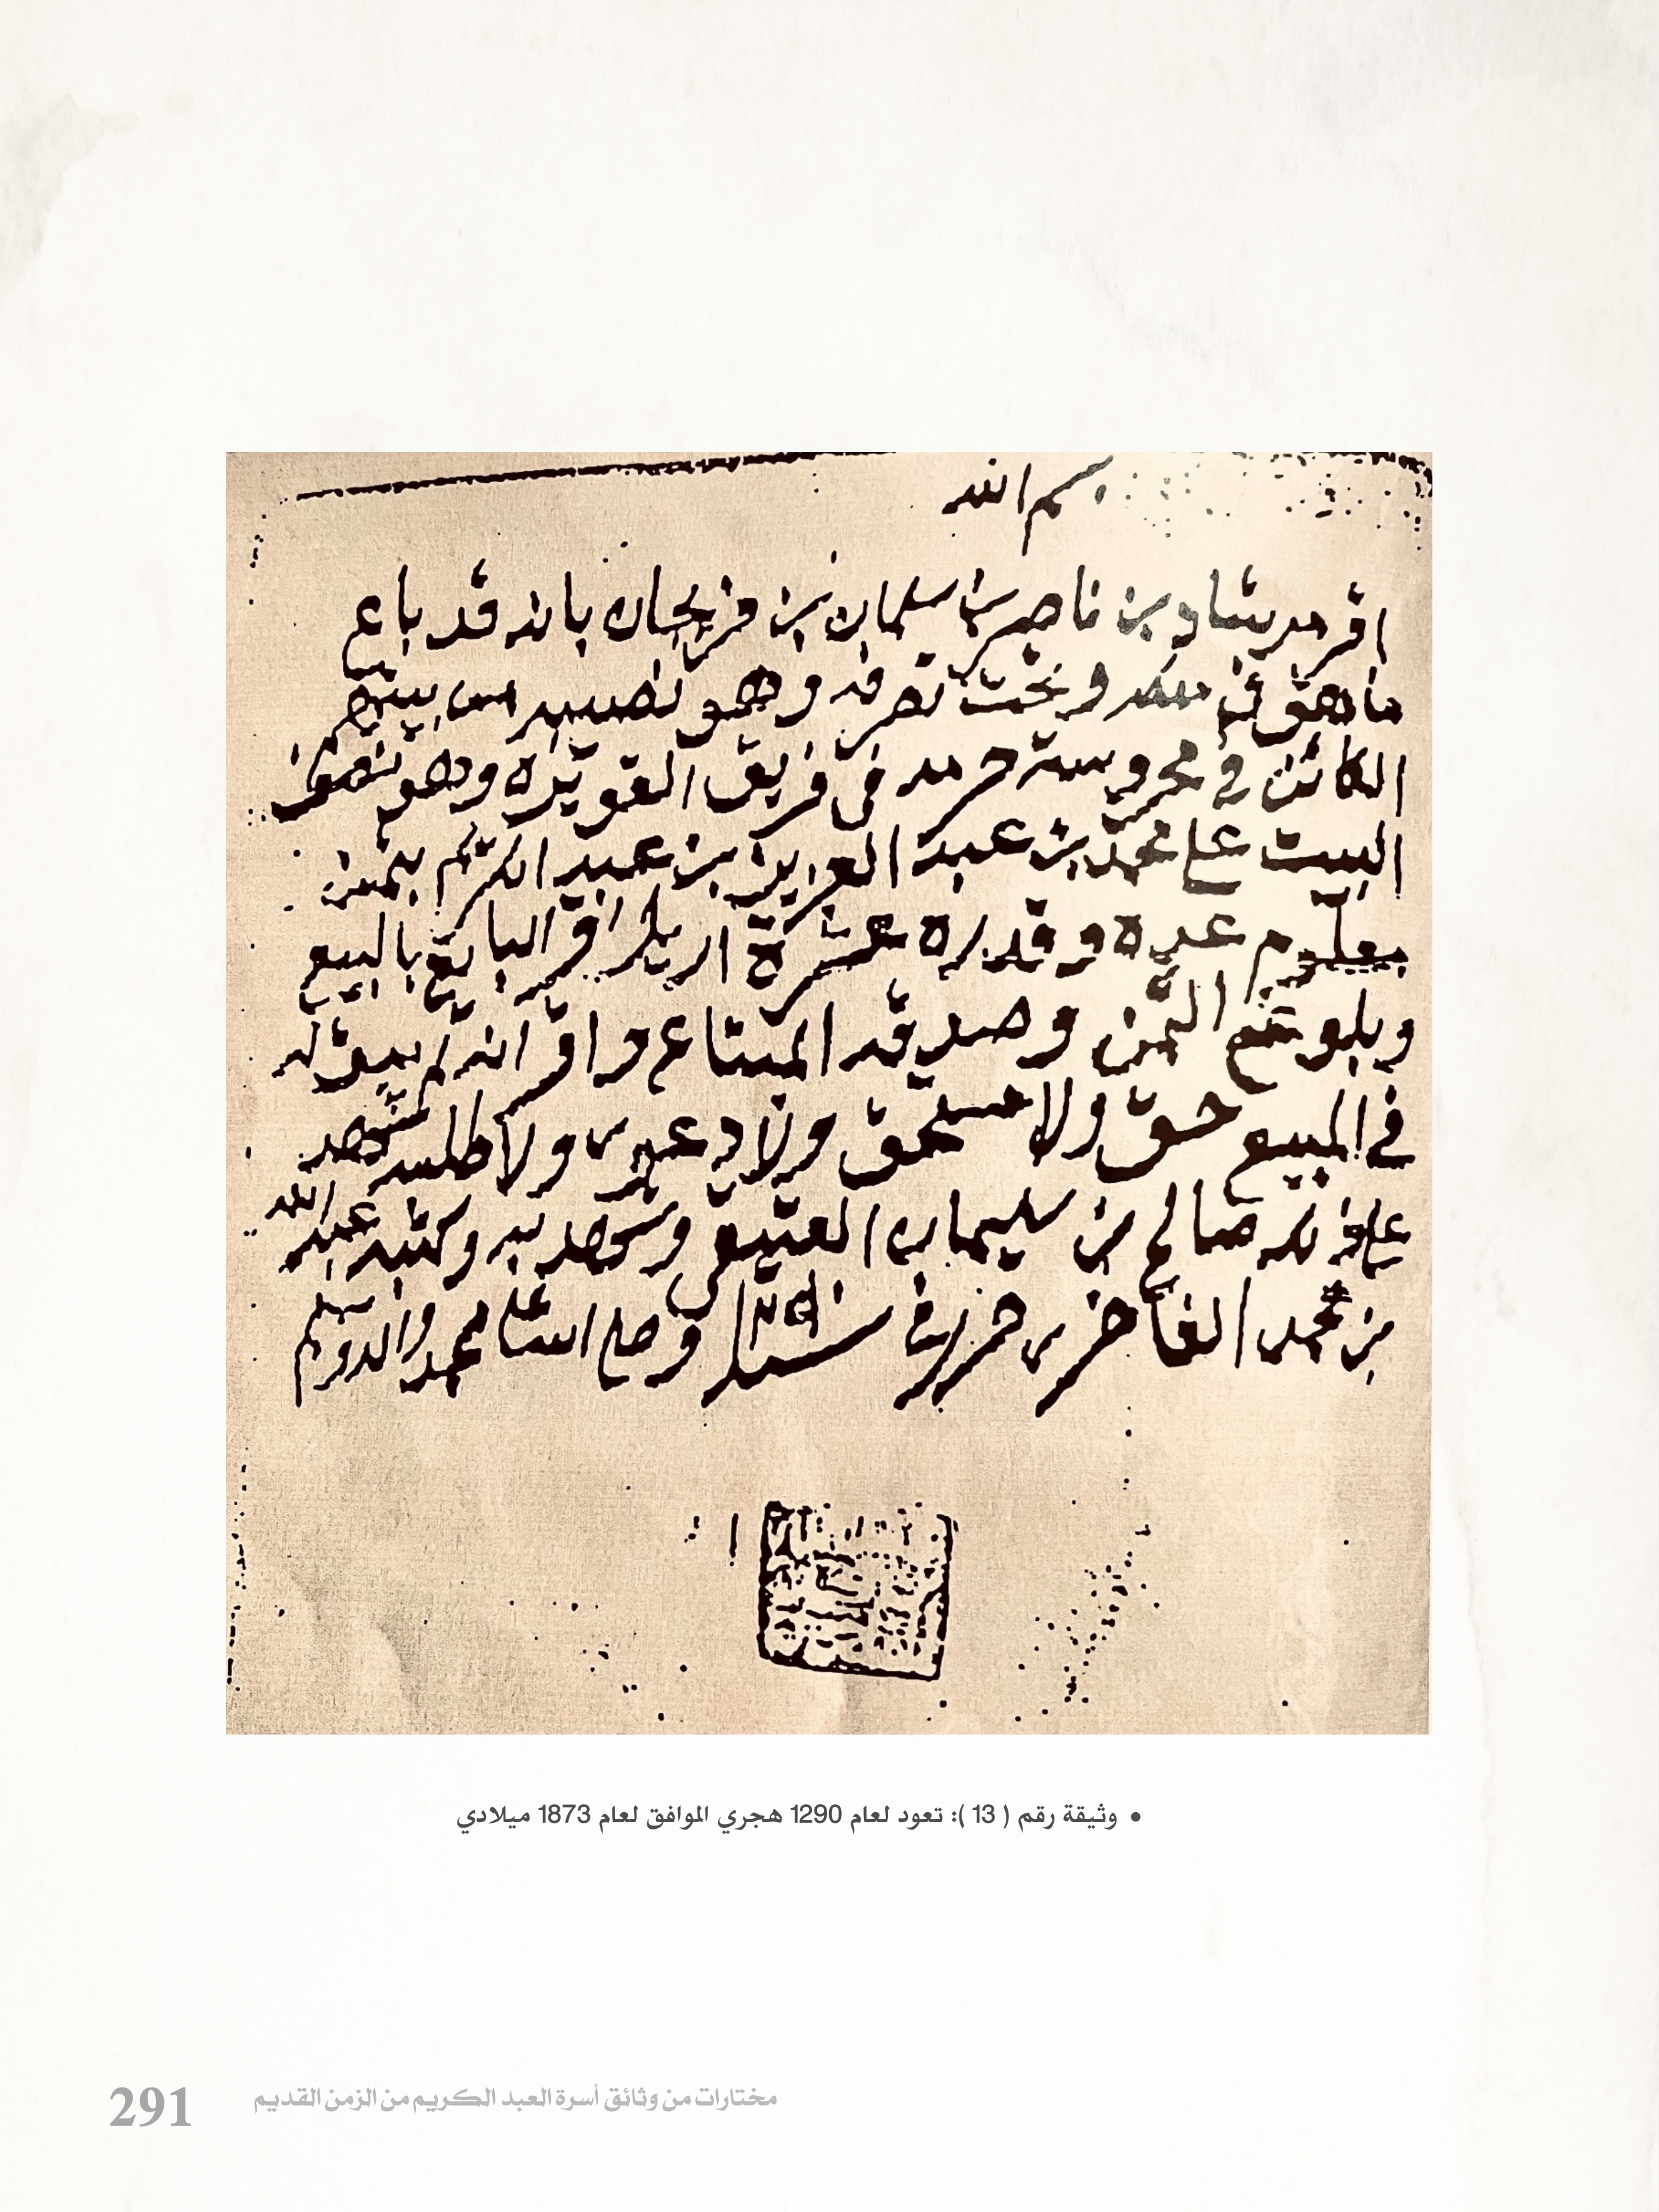 بسم الله
اقر مرشاد بن ناصر بن سليمان بن فريحان بانه قد باع
ما هو في ملكه و تحت تصرفه وهو نصيبه من بيتهم
الكائن في محروسة حرمه في فريق القويزه وهو نصف
البيت على محمد بن عبد العزيز بن عبد الكريم بثمن
معلوم عده و قدره عشرة اريل اقر البايع بالبيع
وبلوغ الثمن وصدقه المبتاع واقر انه لم يبق له
في المبيع حق ولا مستحق ولا دعوى ولا طلبه شهد
على ذلك صالح بن سليمان العتيقي وشهد به وكتبه عبد الله
بن محمد الفاخري حرر في سنة ١٢٩٠ وصلى الله على محمد واله وسلم
• وثيقة رقم ( 13 ): تعود لعام 1290 هجري الموافق لعام 1873 ميلادي
مختارات من وثائق أسرة العبد الكريم من الزمن القديم
291